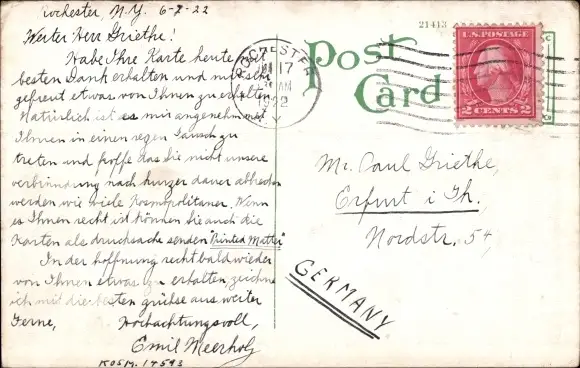 Rochester, N.Y. 6-7-22
Werter Herr Griethe!
Habe Ihre Karte heute mit
besten Dank erhalten und mich sehr
gefreut etwas von Ihnen zu erhalten.
Natürlich ist es mir angenehm mit
Ihnen in einen regen Tausch zu
treten und hoffe das Sie nicht unsere
verbinndung nach kurzer dauer abbrechen
werden wie viele Kosmopolitaner. Wenn
es Ihnen recht ist können Sie auch die
Karten als drucksache senden "Printed Matter"
In der hoffnung recht bald wieder
von Ihnen etwas zu erhalten, zeichne
ich mit die besten grüße aus weiter
Ferne,
Hochachtungsvoll,
Emil Meerholz
KOSM. 14593
21413
Post
Card
ROCHESTER
17
AM
1922
N.Y.
U.S. POSTAGE
2 CENTS 2
Mr. Paul Griethe,
Erfurt i Th.
Nordstr. 54,
GERMANY